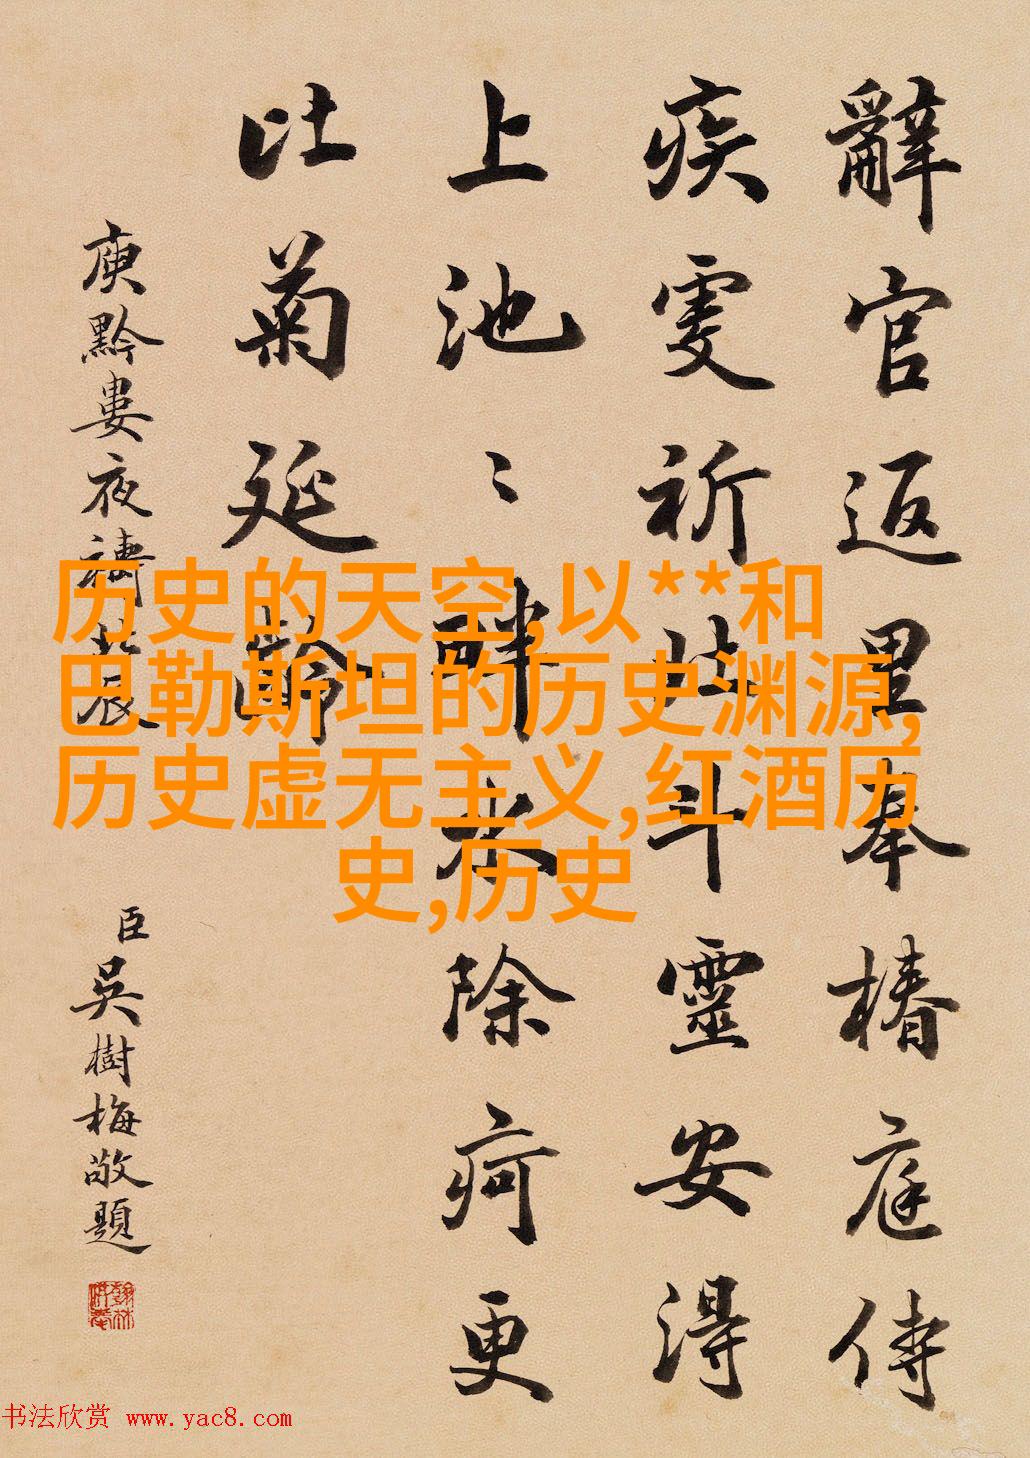 辭官返里奉椿庭侍
疾雯祈北斗靈安得
上池〻畔水除疴更
吐菊延齡
庾黔婁夜禱北辰
臣吳樹梅敬題
历史的天空,以**和
巴勒斯坦的历史渊源,
历史虚无主义,红酒历
史,历史
书法欣赏 www.yac8.com